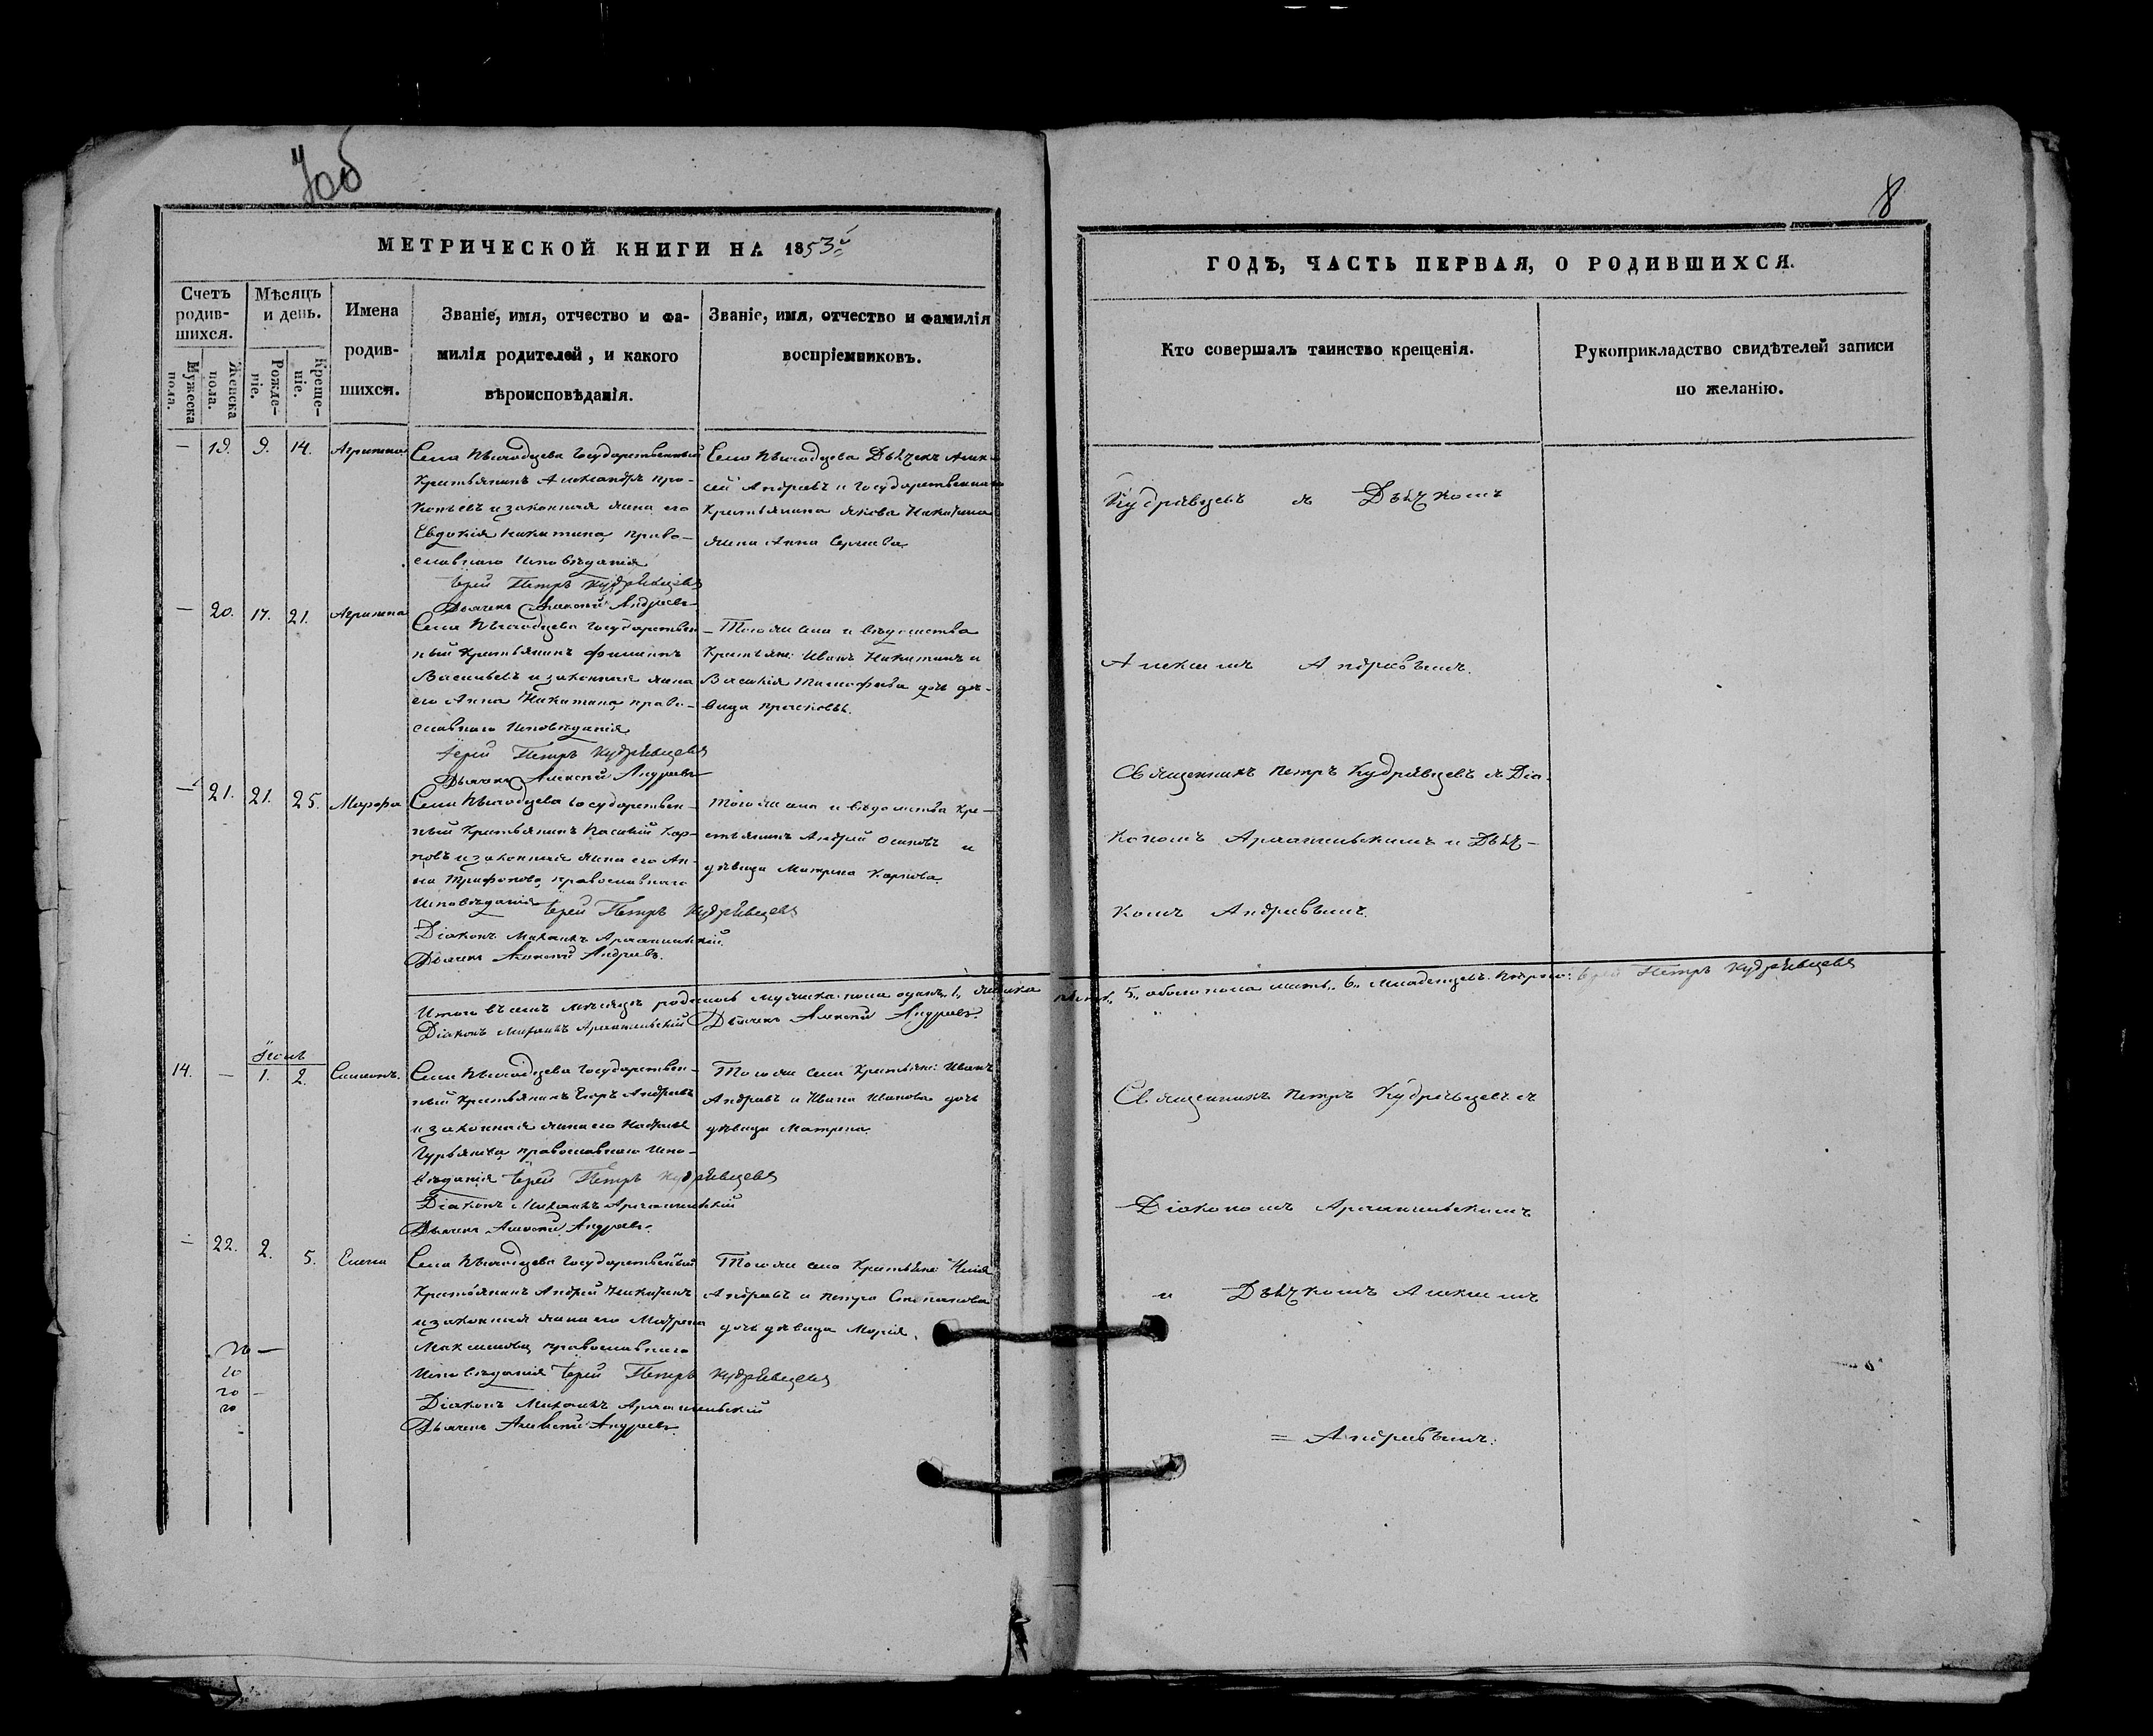 7об
8
МЕТРИЧЕСКОЙ КНИГИ НА 1853й
Счетъ родив-шихся.
Мужеска пола.
Женска пола.
Мѣсяцъ и день.
Рожде-ніе.
Креще-ніе.
Имена родив-шихся.
Званіе, имя, отчество и фа-
милія родителей, и какого
вѣроисповѣданія.
Званіе, имя, отчество и фамилія
воспріемниковъ.
— 19. 9. 14. Агрипина
Села Государственный
Крестьянинъ Александръ Про-
копьевъ и законная жена его
Евдокія Никитина, право-
славнаго Исповѣданія
Іерей Петръ Кудрявцевъ
Дьячекъ Алексѣй Андреевъ
Села Дьячекъ Алек-
сѣй Андреевъ и Государственнаго
Крестьянина Якова Никитина
жена Анна Сергѣева.
— 20. 17. 21. Агрипина
Села Государствен
ный Крестьянинъ Филиппъ
Васильевъ и законная жена
его Анна Никитина, право-
славнаго Исповѣданія
Іерей Петръ Кудрявцевъ
Дьячекъ Алексѣй Андреевъ
Того же села и вѣдомства
Крестьяне: Иванъ Никитинъ и
Тимофеева дочь дѣ-
вица
— 21. 21. 25. Марфа
Села Государствен-
ный Крестьянинъ Василій Кар-
повъ и законная жена его Ан-
на Трифонова, православнаго
Исповѣданія Іерей Петръ Кудрявцевъ
Діаконъ Михаилъ
Дьячекъ Алексѣй Андреевъ.
Того же села и вѣдомства Кре-
стьянинъ Андрей Осиповъ и
дѣвица Матрена Карпова.
Итого въ маѣ мѣсяцѣ родилось мужеска пола одинъ „1„ женска
Діаконъ Михаилъ Дьячекъ Алексѣй Андреевъ.
14. — 1. 2. Симеонъ.
Села Государствен-
ный Крестьянинъ Егоръ Андреевъ
и законная жена его Наталья
Гурьянова, православнаго Испо-
вѣданія Іерей Петръ Кудрявцевъ
Діаконъ Михаилъ
Дьячекъ Алексѣй Андреевъ.
Того же села Крестьяне: Иванъ
Андреевъ и Ивана Иванова дочь
дѣвица Матрена.
— 22. 2. 5. Елена
Села Государственный
Крестьянинъ Андрей Никитинъ
и законная жена его Матрена
Максимова, православнаго
Исповѣданія Іерей Петръ Кудрявцевъ
Діаконъ Михаилъ
Дьячекъ Алексѣй Андреевъ
Того же села Крестьяне: Илія
Андреевъ и Петра Степанова
дочь дѣвица Марія.
ГОДЪ, ЧАСТЬ ПЕРВАЯ, О РОДИВШИХСЯ.
Кто совершалъ таинство крещенія.
Рукоприкладство свидѣтелей записи
по желанію.
Кудрявцевъ съ Дьячкомъ
Алексеемъ Андреевымъ.
Священникъ Петръ Кудрявцевъ съ Діа-
кономъ и Дьяч-
комъ Андреевымъ.
„5„ обоего пола шесть „6„ младенцевъ. Іерей Петръ Кудрявцевъ
Священникъ Петръ Кудрявцевъ съ
Діакономъ
и Дьячкомъ Алексеемъ
= Андреевымъ.